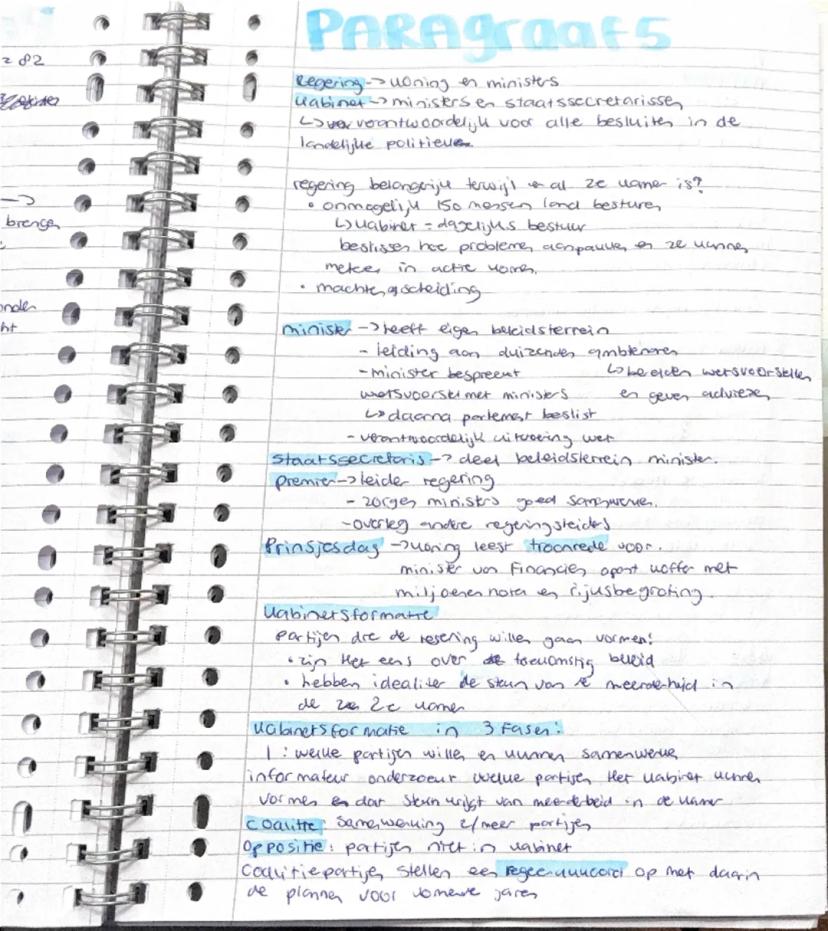 PARAgraaf 5
= 82
Regering -> koning en ministers
kabinet -> ministers en staatssecretarissen
↳ verantwoordelijk voor alle besluiten in de
landelijke politiek
regering belangrijk terwijl er al 2e kamer is?
• onmogelijk 150 mensen land besturen
↳ kabinet = dagelijks bestuur
beslissen hoe problemen aanpakken en ze kunnen
meteen in actie komen.
• machtenscheiding
brengen
minister -> heeft eigen beleidsterrein
- leiding aan duizenden ambtenaren
- minister bespreekt ↳ bereiden wetsvoorstellen
wetsvoorstel met ministers en geven adviezen
↳ daarna parlement beslist
- verantwoordelijk uitvoering wet
staatssecretaris -> deel beleidsterrein minister.
premier -> leider regering
- zorgen ministers goed samenwerken.
- overleg andere regeringsleiders
Prinsjesdag -> koning leest troonrede voor.
minister van Financiën opent koffer met
miljoenennota en rijksbegroting.
kabinetsformatie
partijen die de regering willen gaan vormen!
• zijn het eens over toekomstig beleid
• hebben idealiter de steun van meerderheid in
de 2e kamer
kabinetsformatie in 3 fasen:
1: welke partijen willen en kunnen samenwerken
informateur onderzoekt welke partijen het kabinet kunnen
vormen en dat steun krijgt van meerderheid in de kamer
Coalitie: samenwerking 2/meer partijen
Oppositie: partijen niet in kabinet
Coalitiepartijen stellen een regeerakkoord op met daarin
de plannen voor komende jaren